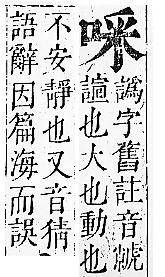 譌字舊註音虩
諠也大也動也
不安靜也又音猜
語辭因篇海而誤